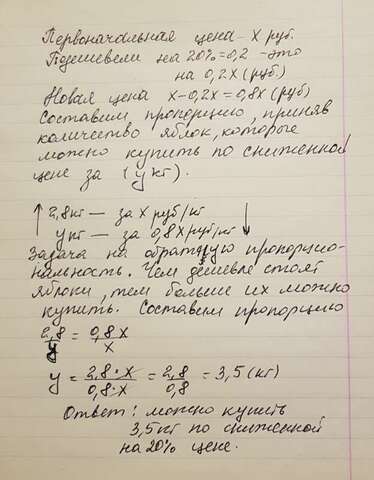 Первоначальная цена - х руб.
Подешевели на 20% = 0,2 - это
на 0,2х (руб.)
Новая цена х-0,2х=0,8х (руб)
Составим пропорцию, приняв
количество яблок, которые
можно купить по сниженной
цене за (у кг).
↑ 2,8кг — за х руб/кг
у кг — за 0,8х руб/кг ↓
Задача на обратную пропорцио-
нальность. Чем дешевле стоят
яблоки, тем больше их можно
купить. Составим пропорцию
2,8/у = 0,8х/х
у = 2,8·х/0,8·х = 2,8/0,8 = 3,5 (кг)
Ответ: можно купить
3,5кг по сниженной
на 20% цене.